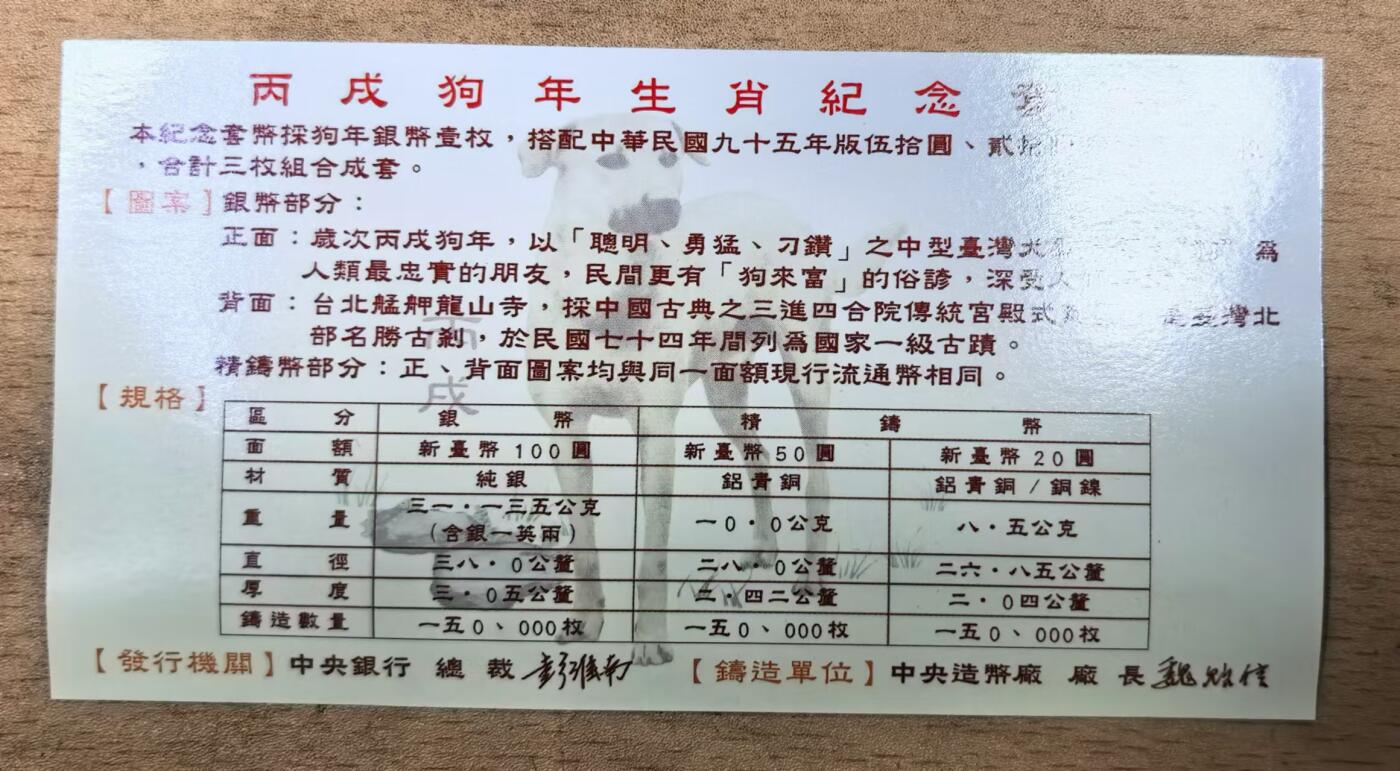 丙戌狗年生肖紀念套
本紀念套幣採狗年銀幣壹枚，搭配中華民國九十五年版伍拾圓、貳拾
，合計三枚組合成套。
【圖案】銀幣部分：
正面：歲次丙戌狗年，以「聰明、勇猛、刁鑽」之中型臺灣犬 為
人類最忠實的朋友，民間更有「狗來富」的俗諺，深受人
背面：台北艋舺龍山寺，採中國古典之三進四合院傳統宮殿式 是臺灣北
部名勝古剎，於民國七十四年間列為國家一級古蹟。
精鑄幣部分：正、背面圖案均與同一面額現行流通幣相同。
【規格】
區分 銀幣 精鑄幣
面額 新臺幣100圓 新臺幣50圓 新臺幣20圓
材質 純銀 鋁青銅 鋁青銅/銅鎳
重量 三一．一三五公克（含銀一英兩） 一0．0公克 八．五公克
直徑 三八．0公釐 二八．0公釐 二六．八五公釐
厚度 三．0五公釐 二．四二公釐 二．0四公釐
鑄造數量 一五0、000枚 一五0、000枚 一五0、000枚
【發行機關】中央銀行 總裁 彭淮南 【鑄造單位】中央造幣廠 廠長
丙戌